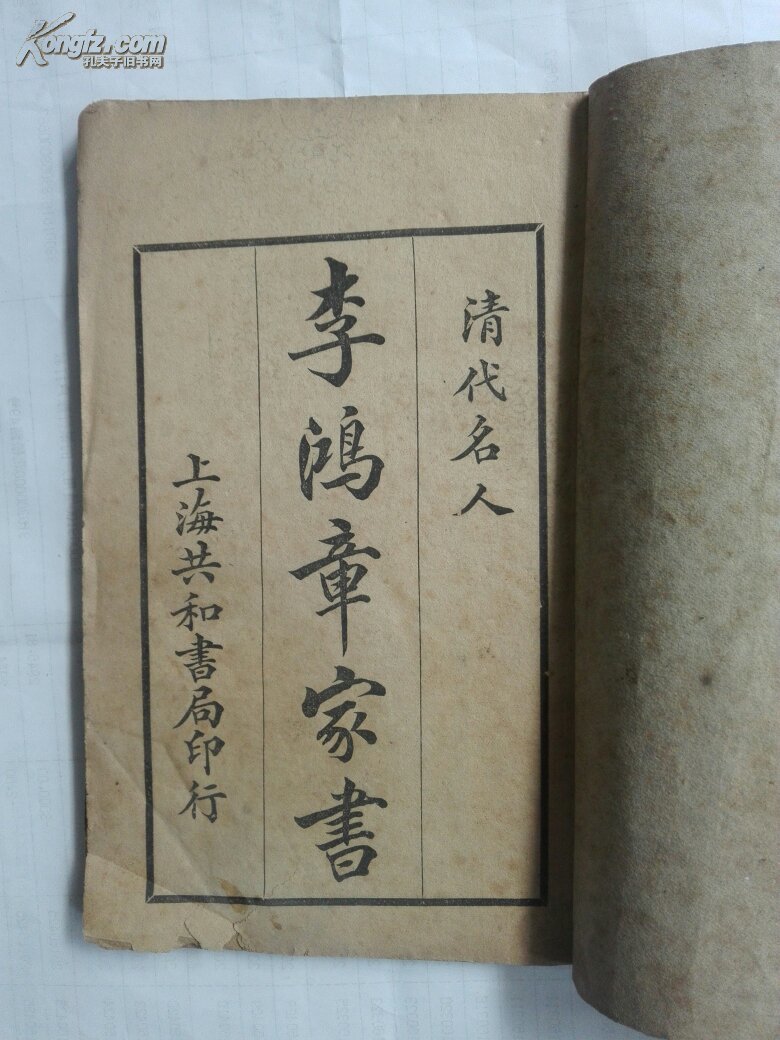 Kongfz.com
孔夫子旧书网
清代名人
李鴻章家書
上海共和書局印行